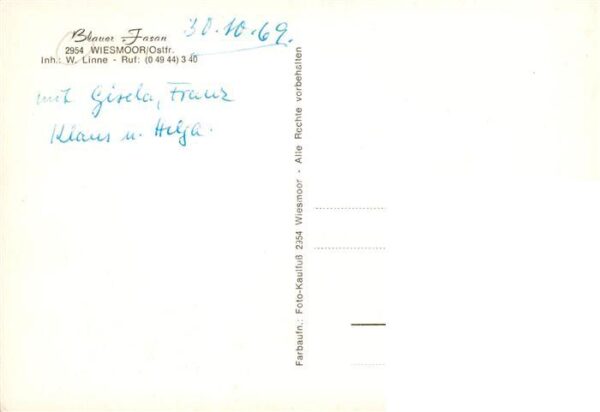 Blauer Fasan
30.10.69.
2954 WIESMOOR/Ostfr.
Inh.: W. Linne - Ruf: (0 49 44) 3 40
mit Gisela, Franz
Klaus u. Helga.
Farbaufn.: Foto-Kaulfuß 2954 Wiesmoor · Alle Rechte vorbehalten